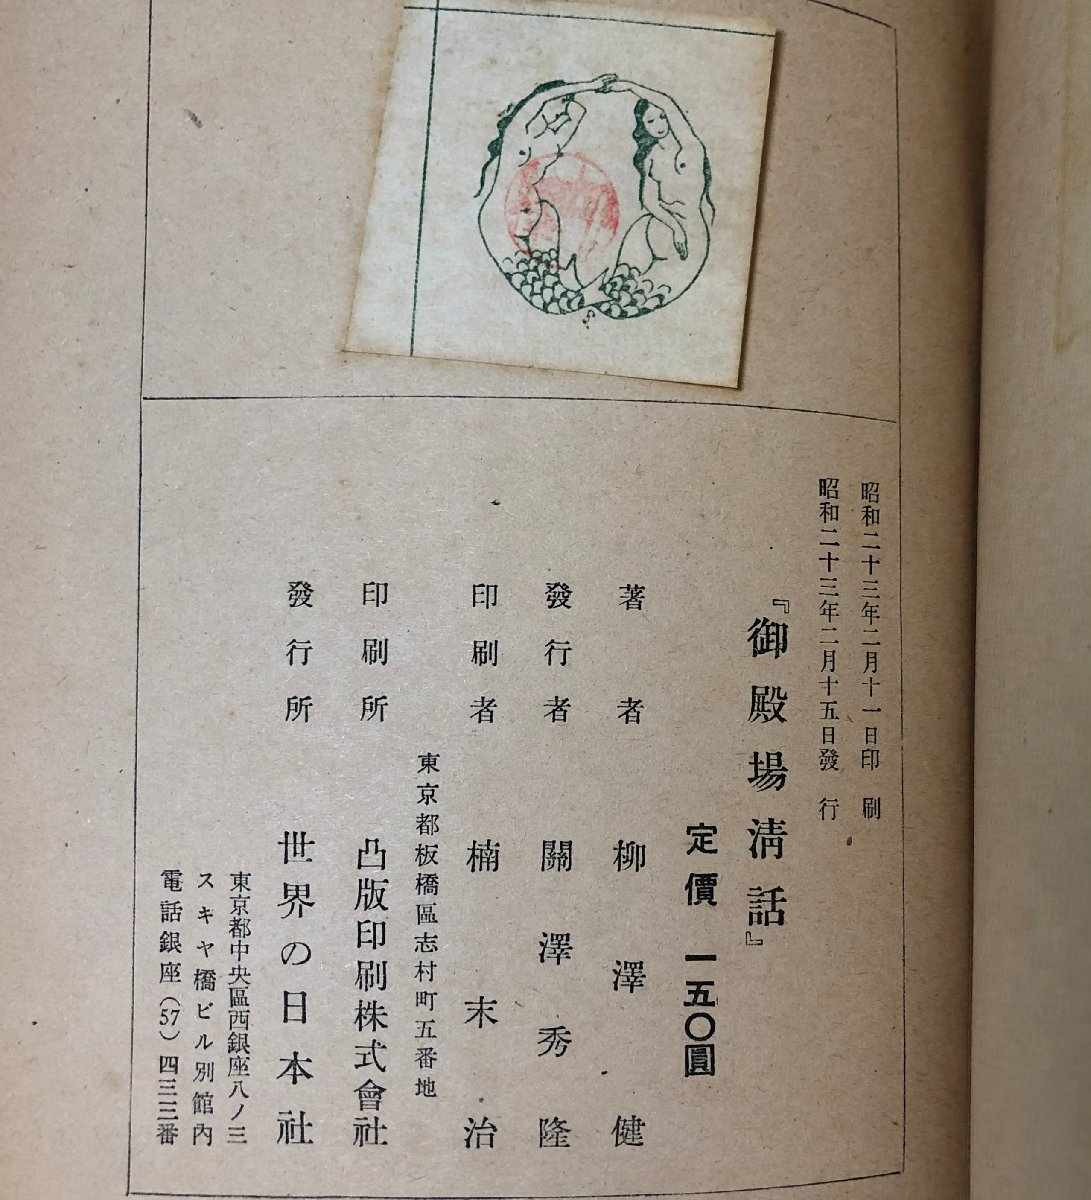 昭和二十三年二月十一日印刷
昭和二十三年二月十五日發行
『御殿場淸話』
定價 一五〇圓
著者 柳澤健
發行者 關澤秀隆
印刷者 楠末治
東京都板橋區志村町五番地
印刷所 凸版印刷株式會社
發行所 世界の日本社
東京都中央區西銀座八ノ三
スキヤ橋ビル別館內
電話銀座(57)四三三番